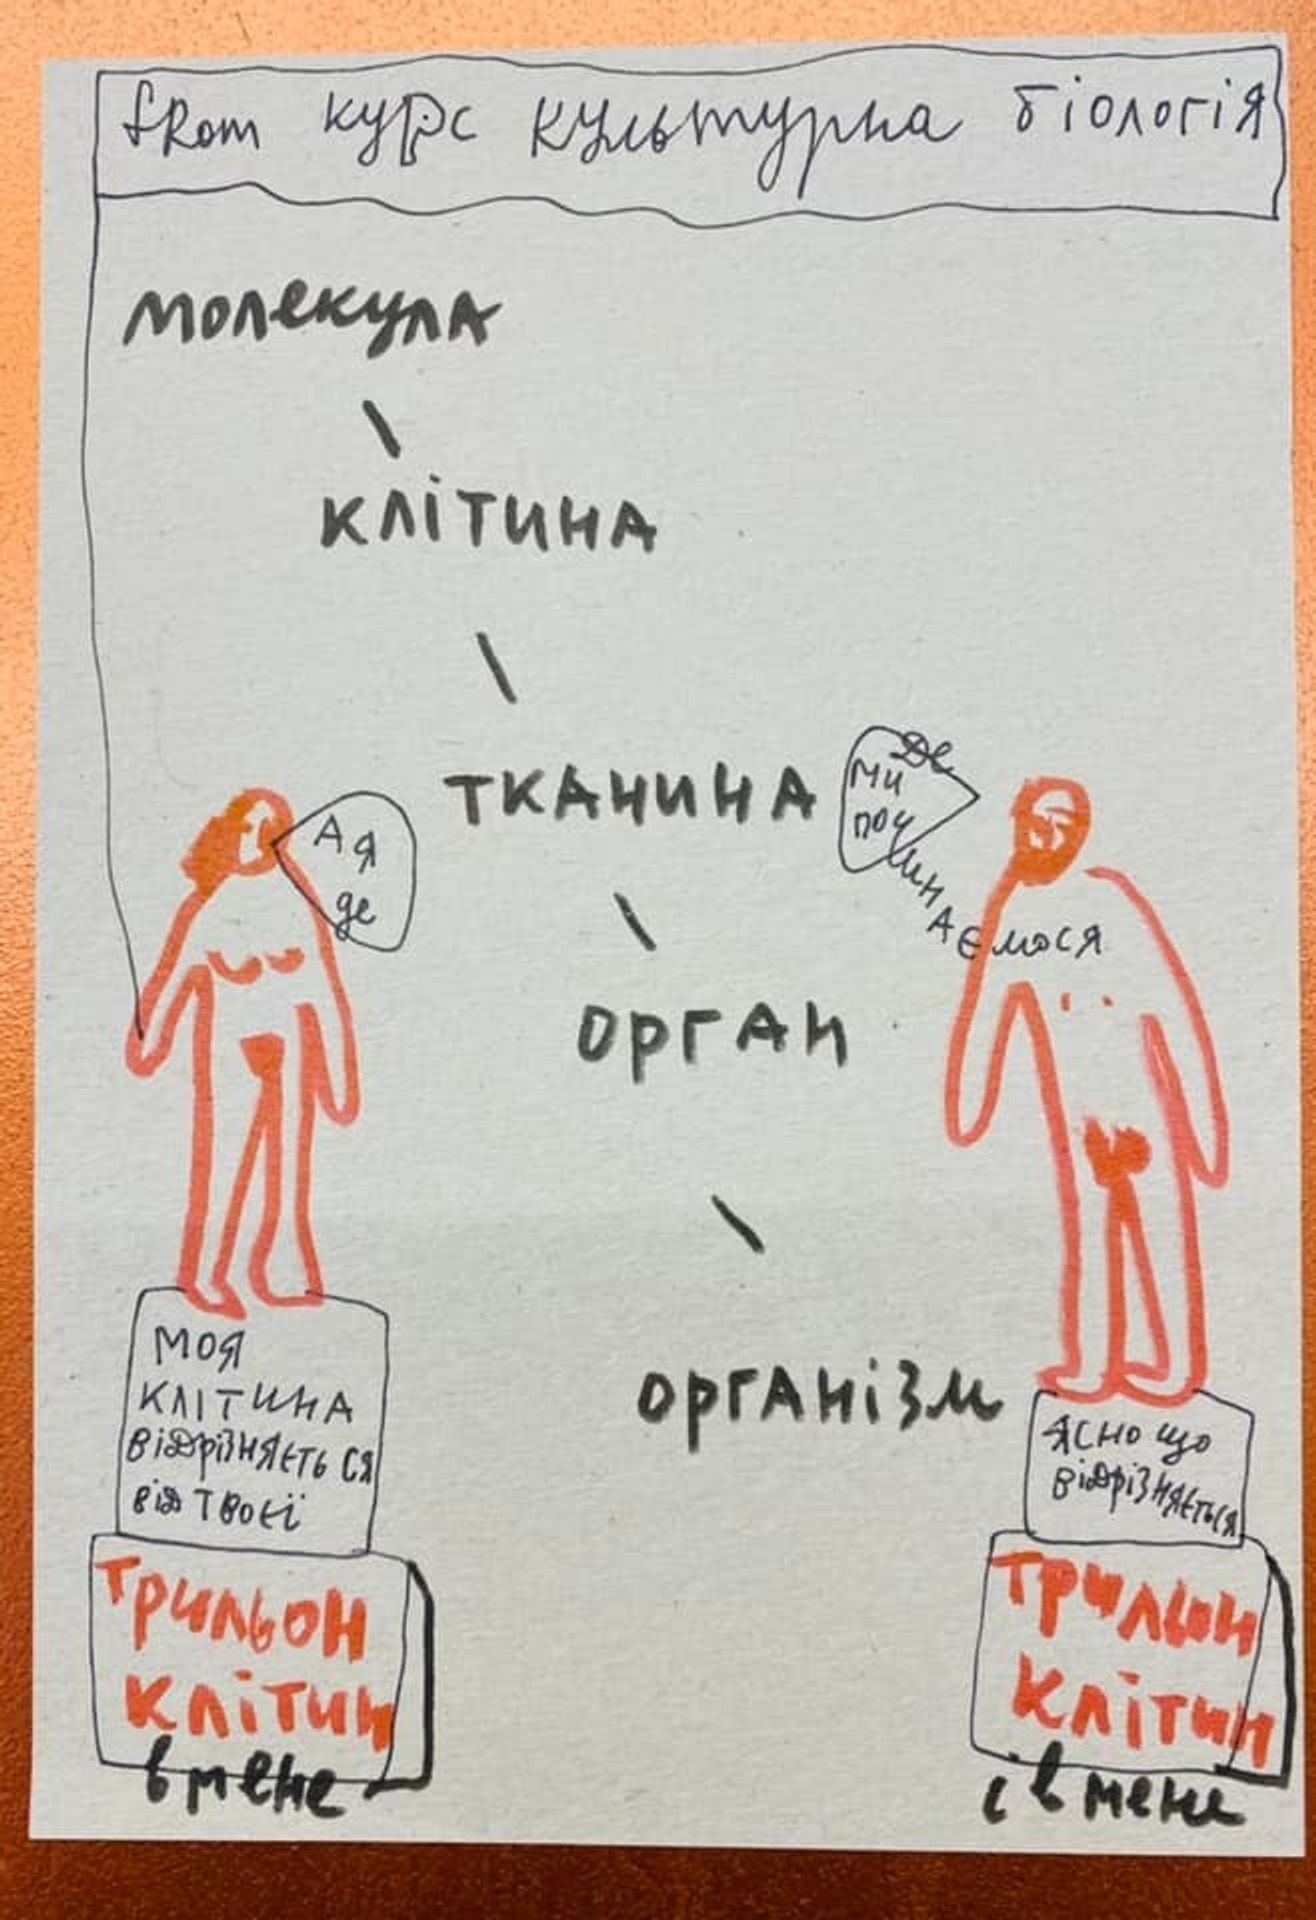 from курс культурна біологія
молекула
клітина
тканина
орган
організм
А я
де
де
ми
починаємося
моя
клітина
відрізняєть ся
від твоєї
трильон
клітин
в мене
ясно що
відрізняється
трильон
клітин
і в мене